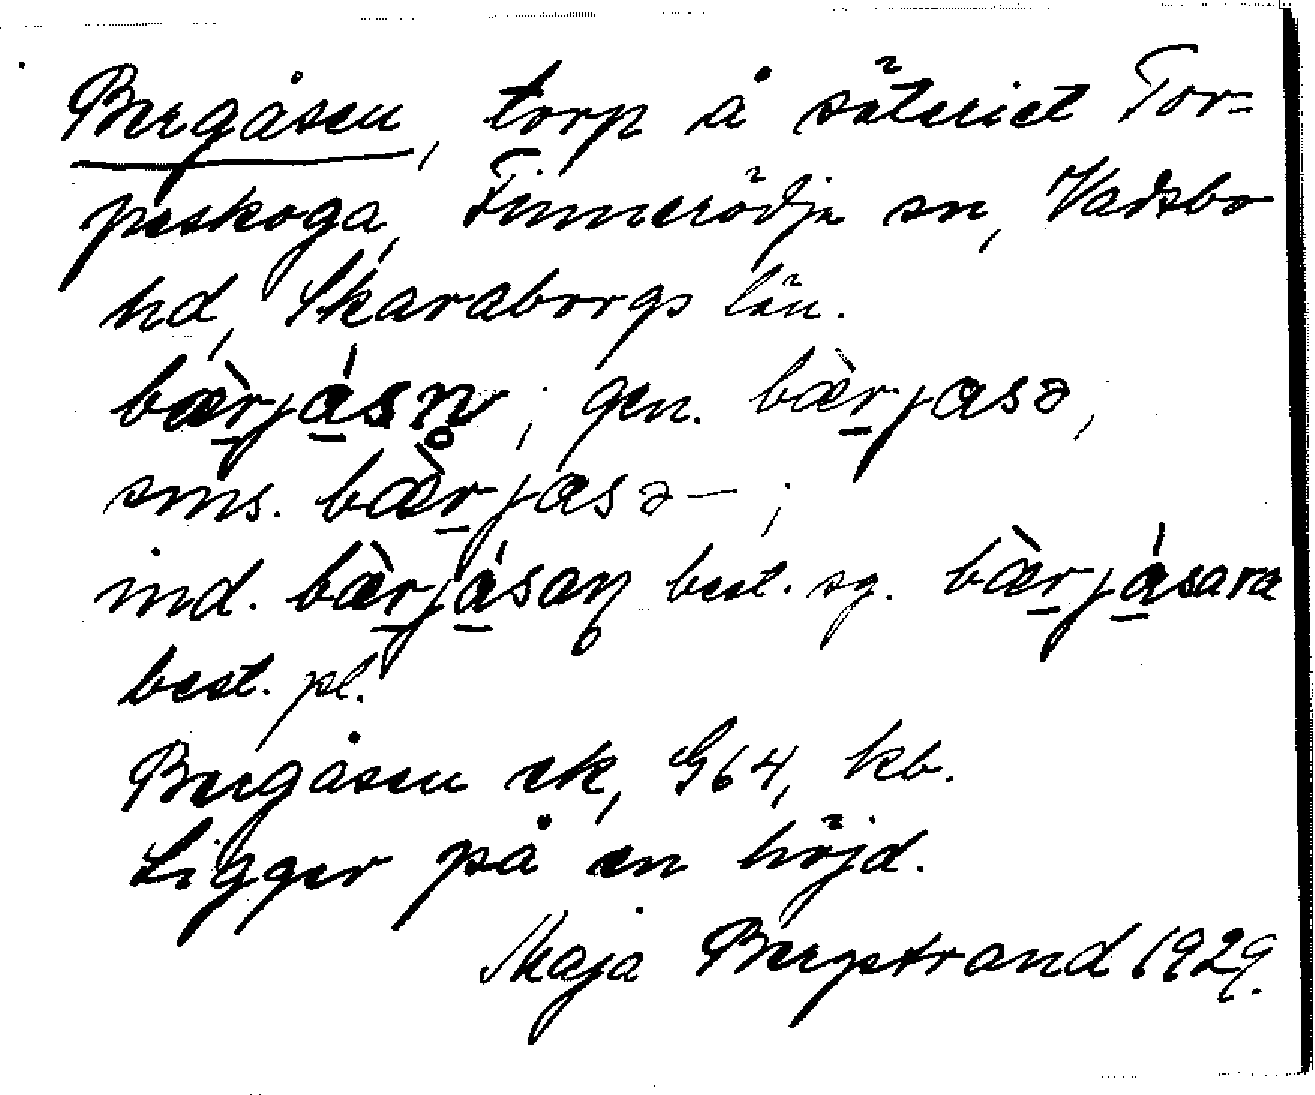 Bergåsen, torp å säteriet Tor=
peskoga, Finnerödja sn, Vadsbo
hd, Skaraborgs län.
bæ̀r̠já̠sn̥; gen. bæ̀r̠jasə,
sms. bæ̀r̠jasə—;
ind. bæ̀r̠já̠san̥ best. sg. bæ̀r̠já̠sara
best. pl.
Bergåsen ek, G64, kb.
Ligger på en höjd.
Maja Bergstrand 1929.